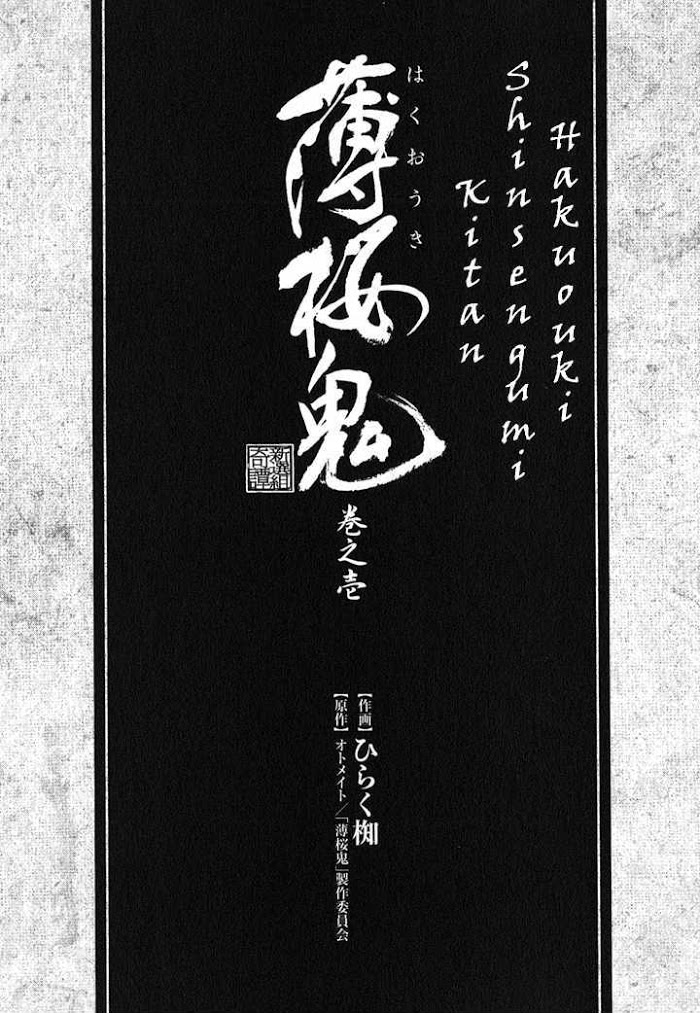 Hakuouki
Shinsengumi
Kitan
はくおうき
薄桜鬼
新選組
奇譚
巻之壱
【作画】ひらく椥
【原作】オトメイト／「薄桜鬼」製作委員会